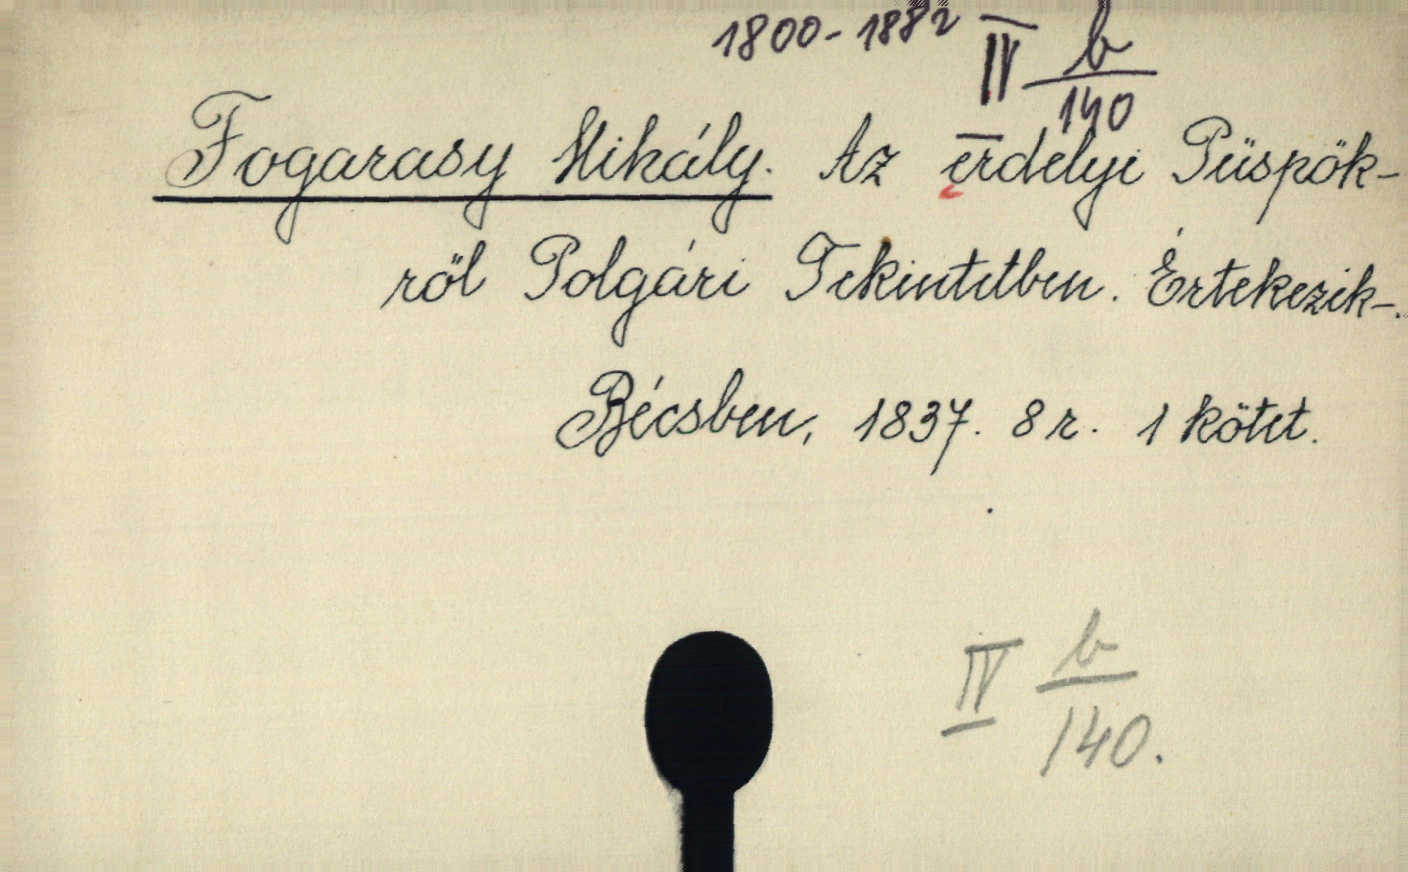 1800-1882 IV b/140
Fogarasy Mihály. Az erdélyi Püspök-
ről Polgári Tekintetben. Értekezik-.
Bécsben, 1837. 8 r. 1 kötet.
IV b/140.